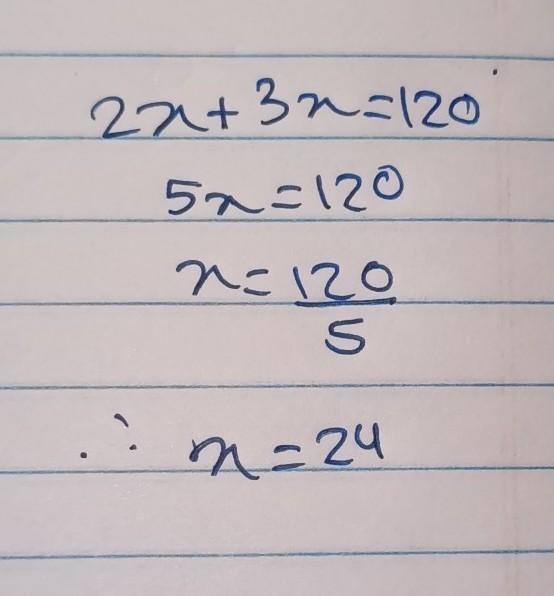 2x+3x=120
5x=120
x=120/5
∴ x=24